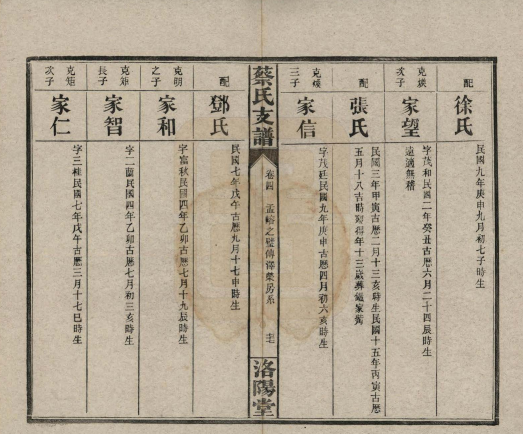 配
徐氏
民國九年庚申九月初七子時生
克煐
次子
家望
字茂和民國二年癸丑古曆六月二十四辰時生
遠適無稽
配
張氏
民國三年甲寅古曆二月十三亥時生民國十五年丙寅古曆
五月十八古時
得年十三歲葬
家
克煐
三子
家信
字茂廷民國九年庚申古曆四月初六亥時生
蔡氏支譜
卷四
之
傳
房系
洛陽堂
配
鄧氏
民國七年戊午古曆九月十七申時生
克明
之子
家和
字富秋民國四年乙卯古曆七月十九辰時生
克矩
長子
家智
字二蘭民國四年乙卯古曆七月初三亥時生
克矩
次子
家仁
字三桂民國七年戊午古曆三月十七巳時生